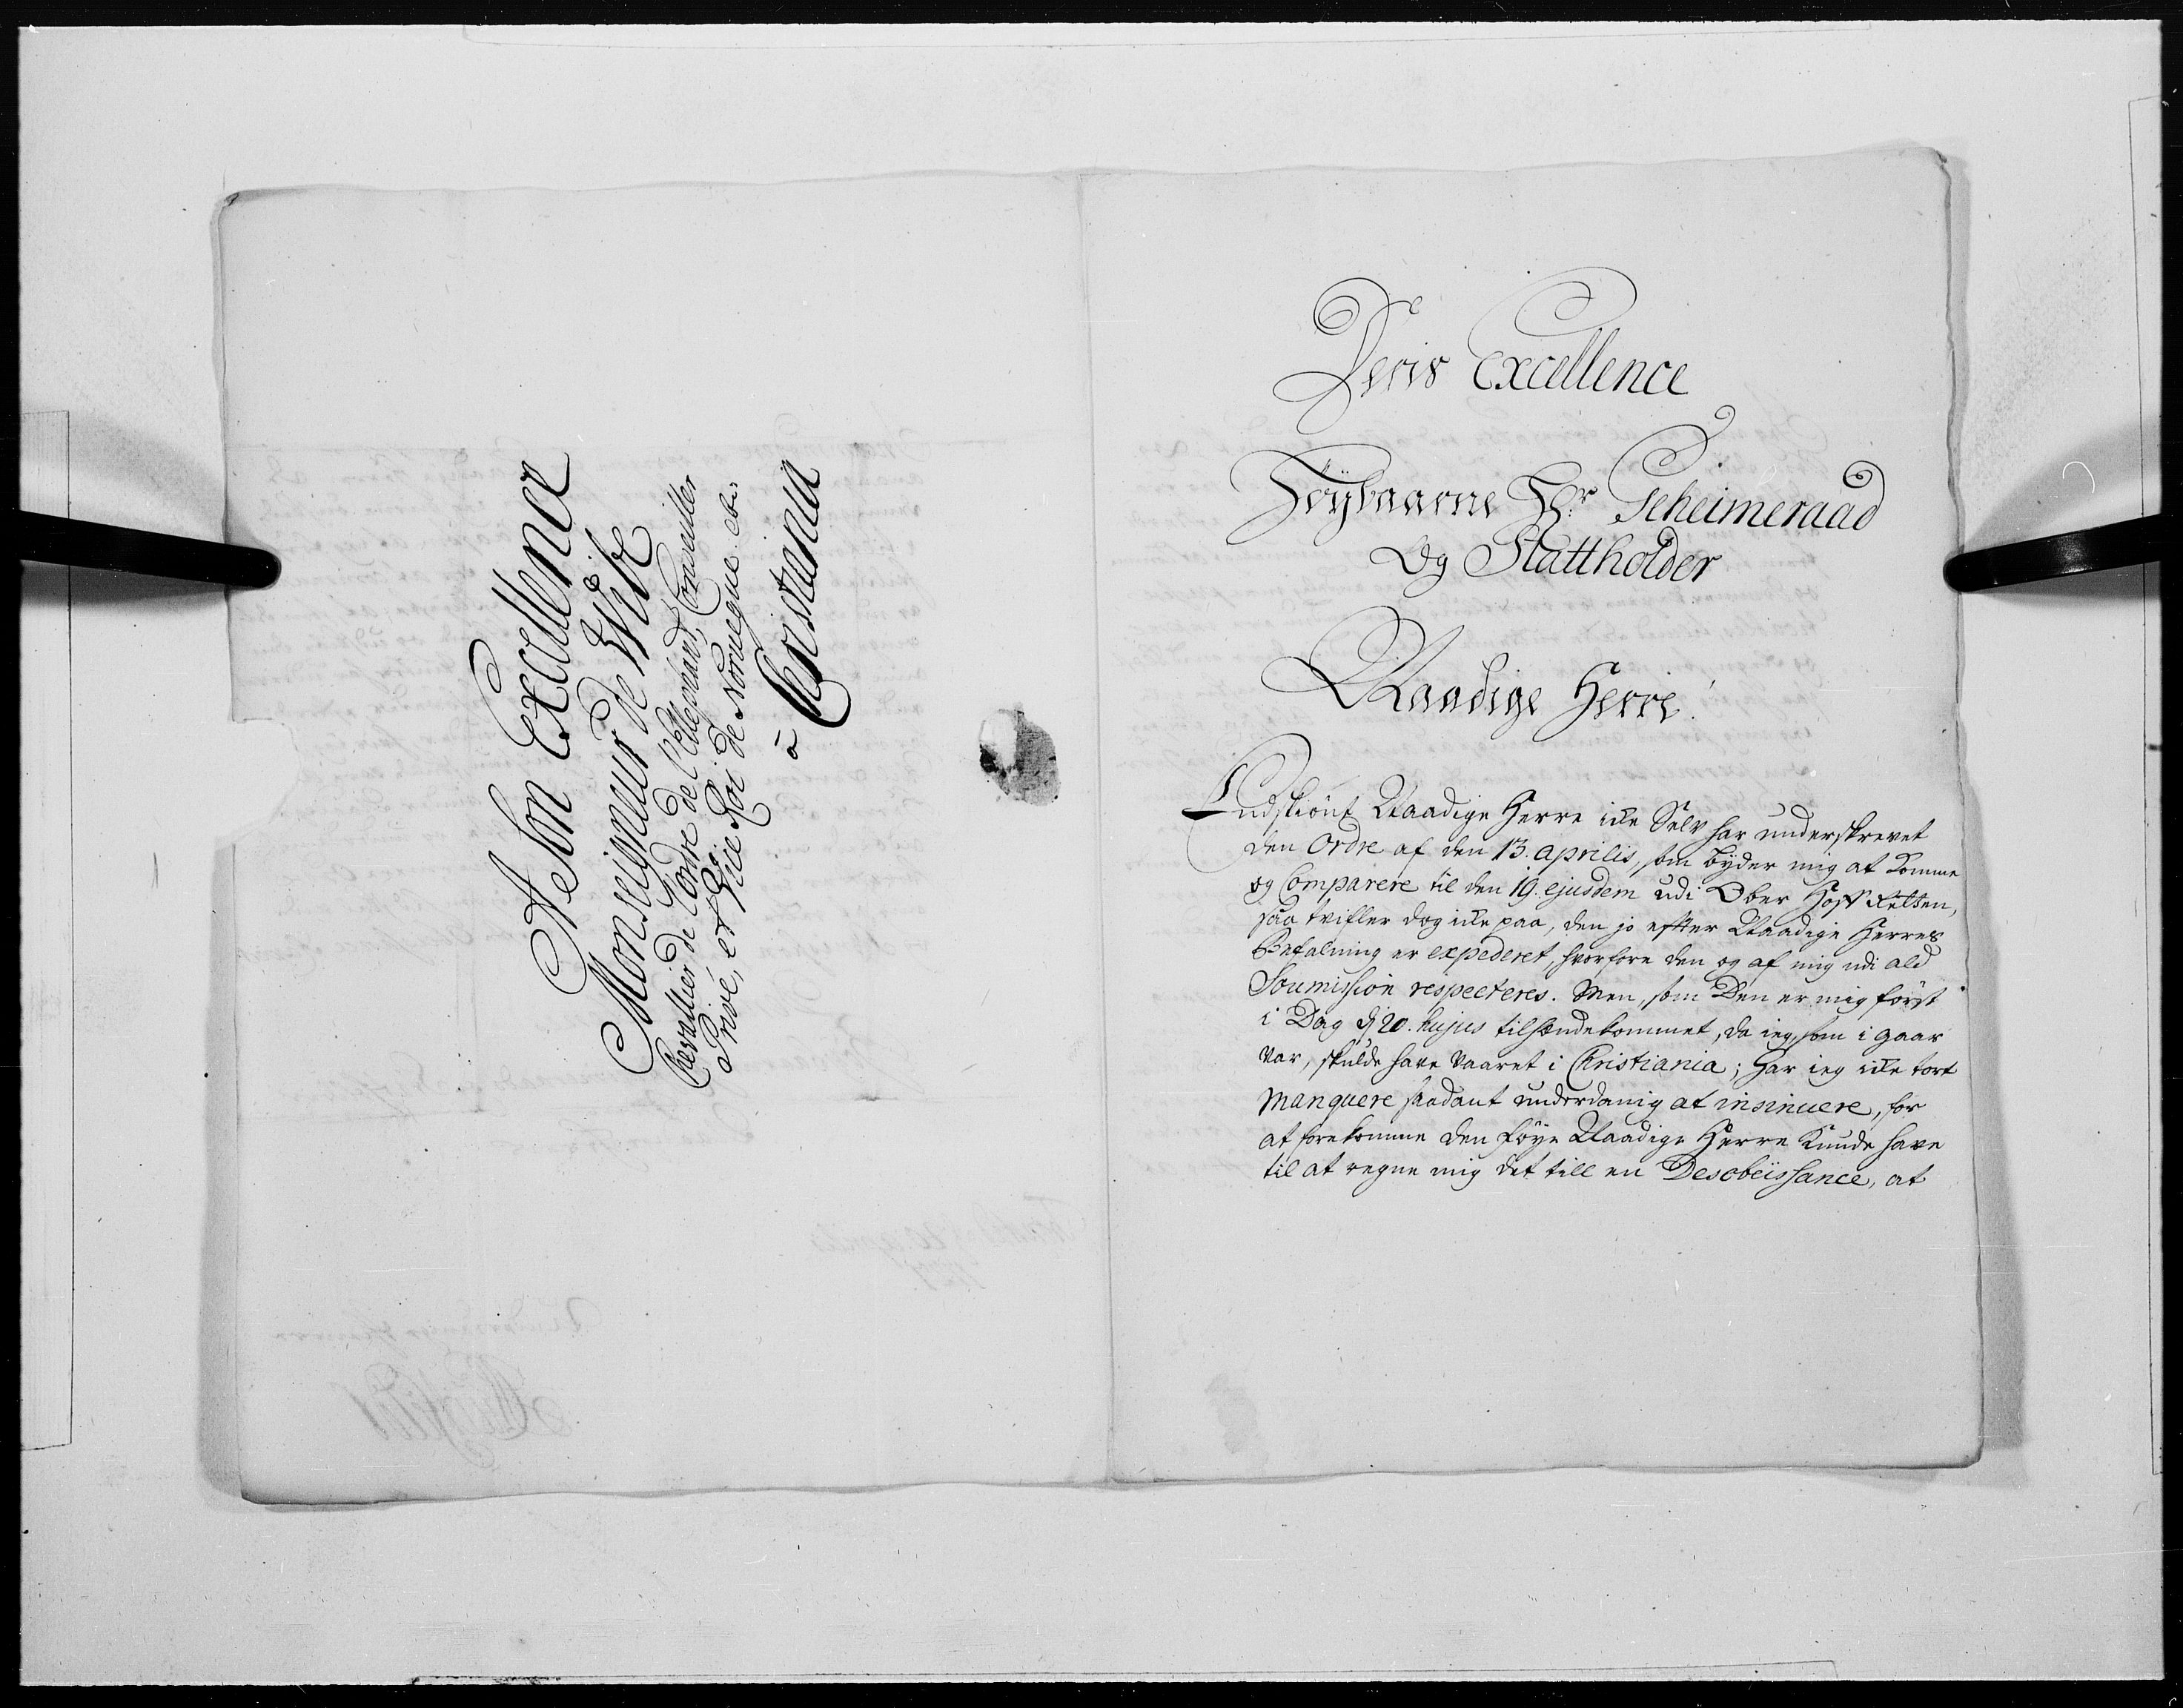 A Son Excellence
Monseigneur de Wibe
Chevallier de l'ordre de l'Elephant, Conseiller
Privé, et Vice Roi de Norvegue. etc:
à Christiania
Deris Excellence
Høybaarne Hr. Geheimeraad
Og Stattholder
Naadige Herre!
Endskiönt Naadige Herre icke Selv har underskrevet
den Ordre af den 13. aprilis, som byder mig at komme
og Comparere til den 19. ejusdem udi Ober Hoff Retten,
saa tvifler dog icke paa, den jo effter Naadige Herres
Befalning er expederet, hvorfore den og af mig udi ald
Soumission respecteres. Men, som Den er mig först
i Dag dj 20. hujus tilhændekommet, da ieg, som i gaar
var, skulde have vaaret i Christiania; har ieg icke tort
Manquere saadant underdanig at insinuere, for
at forekomme den föye Naadige Herre kunde have
til at regne mig det till en Desobeissance, at